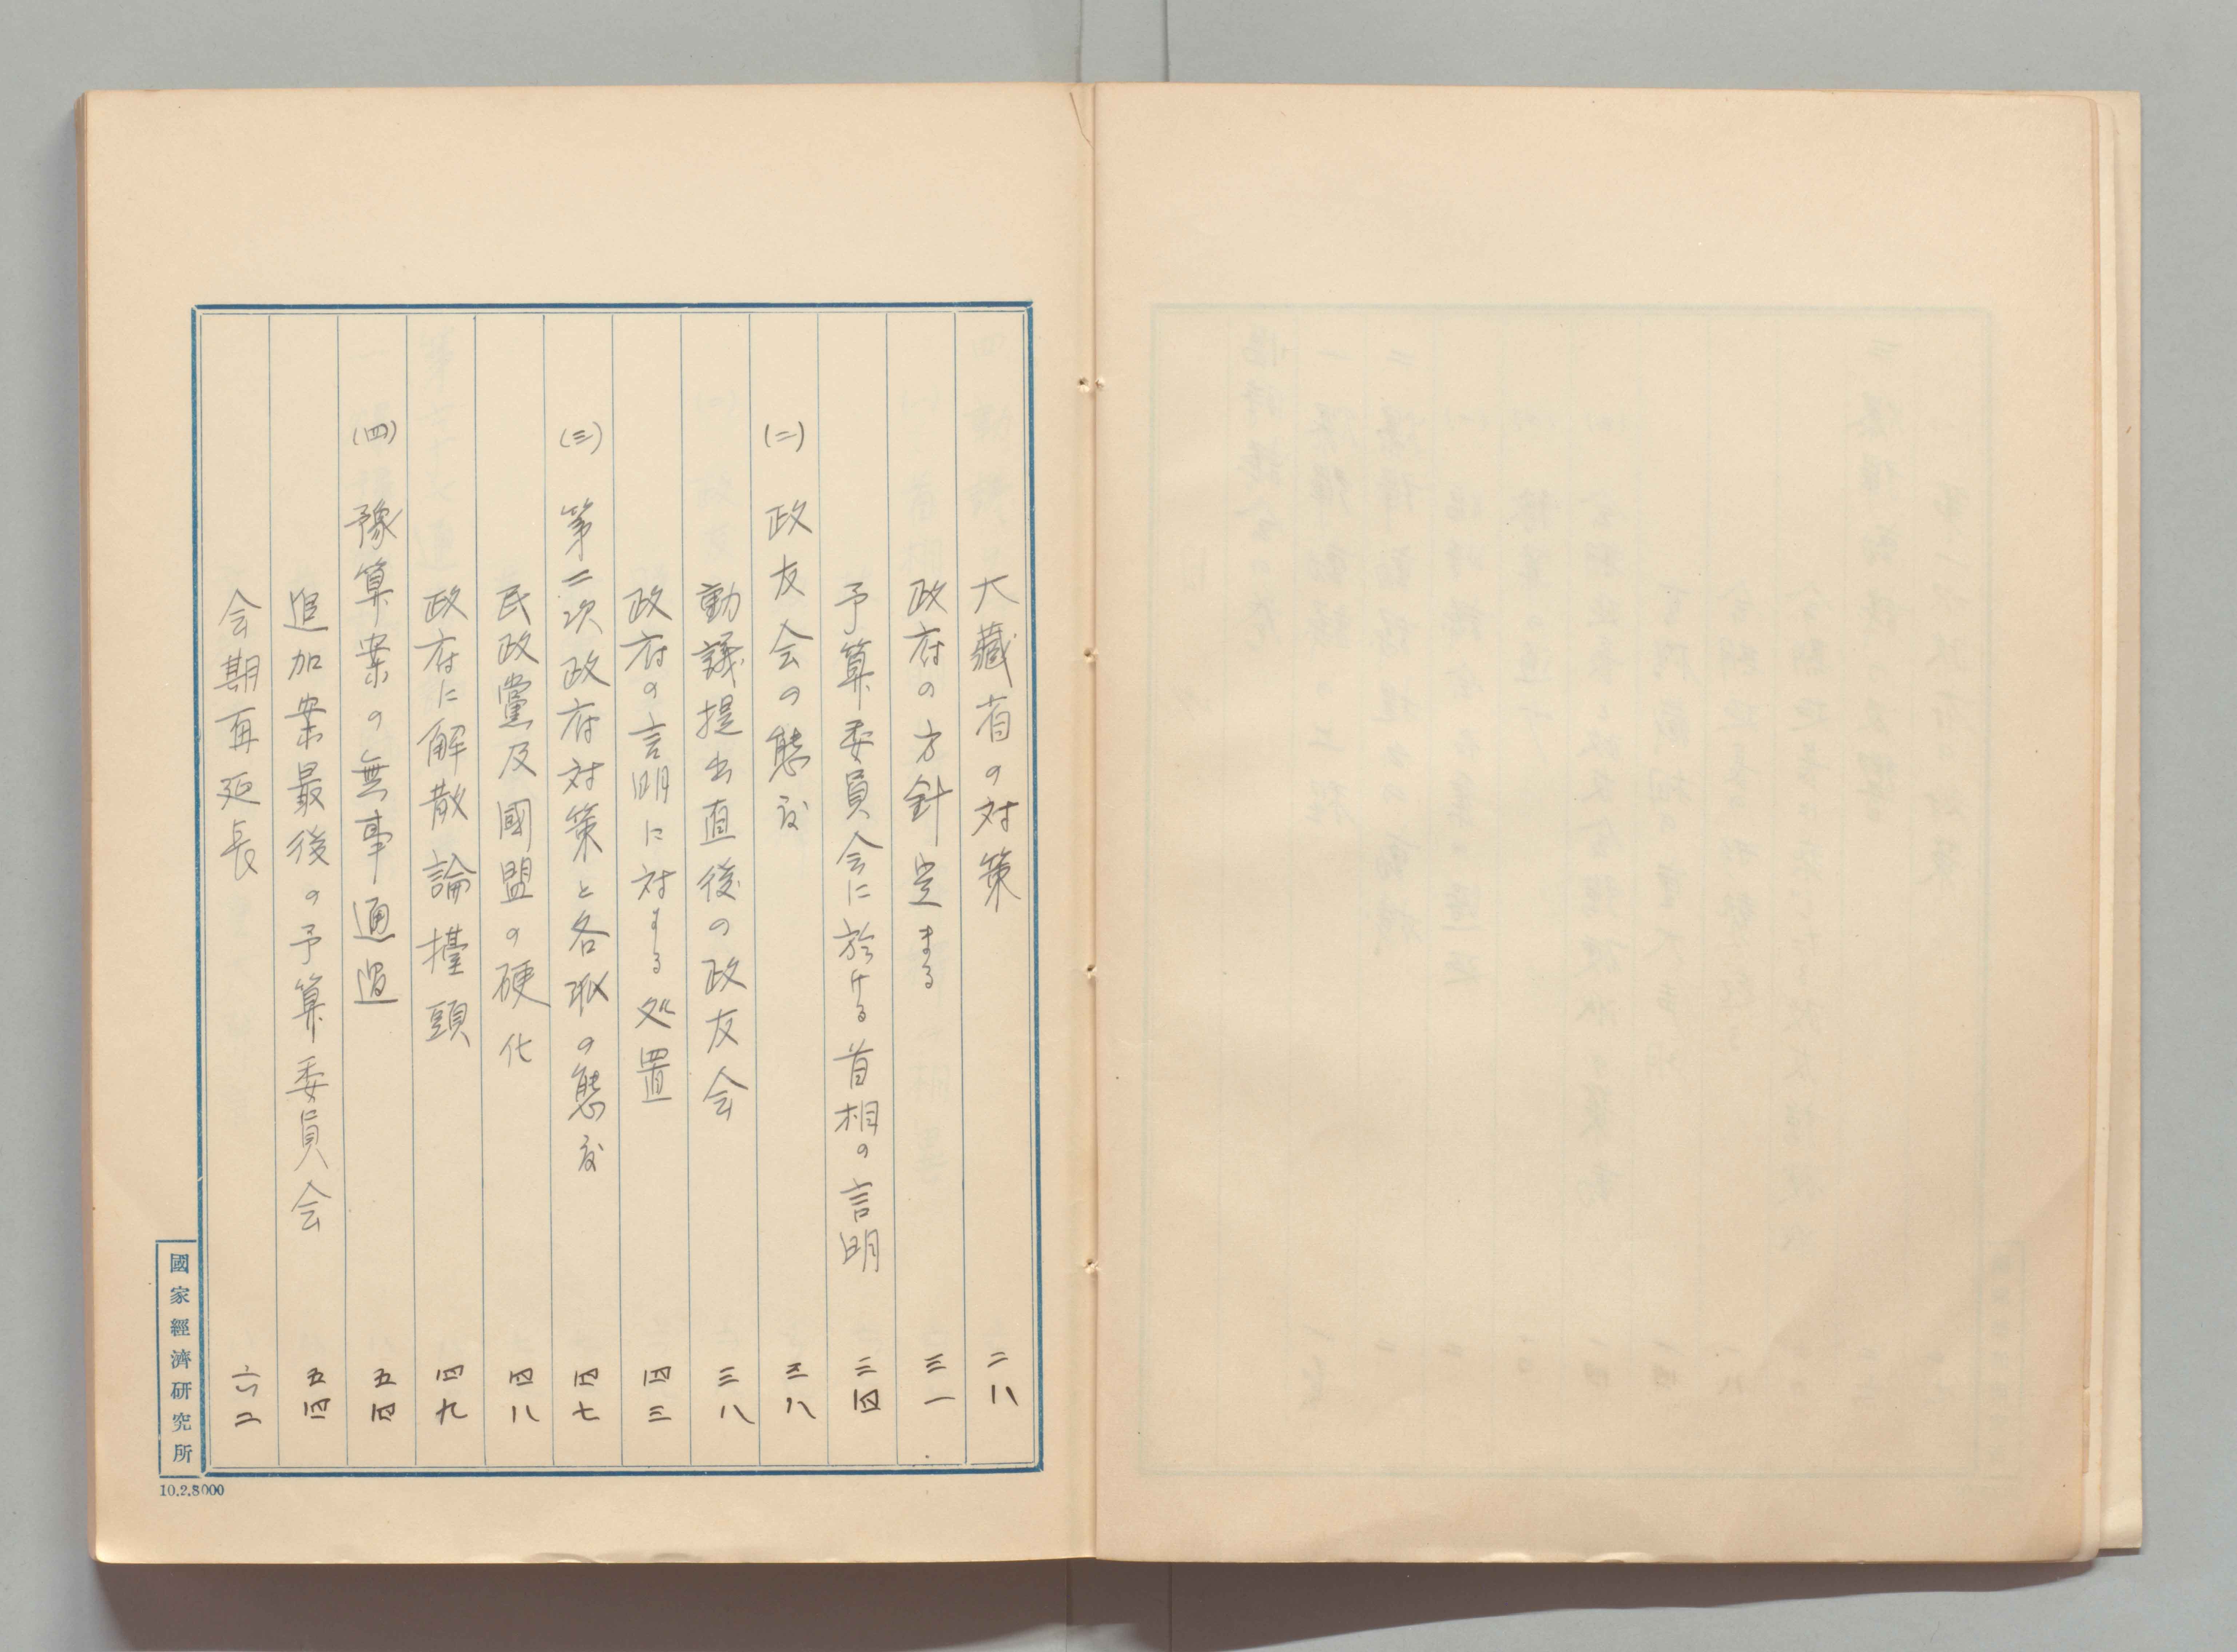 大藏省の対策 二八
政府の方針定まる 三一
予算委員会に於ける首相の言明 三四
(二) 政友会の態度 三八
動議提出直後の政友会 三八
政府の言明に対する処置 四三
(三) 第二次政府対策と各派の態度 四七
民政黨及國盟の硬化 四八
政府に解散論擡頭 四九
(四) 豫算案の無事通過 五四
追加案最後の予算委員会 五四
会期再延長 六二
國家經濟研究所
10.2.8000